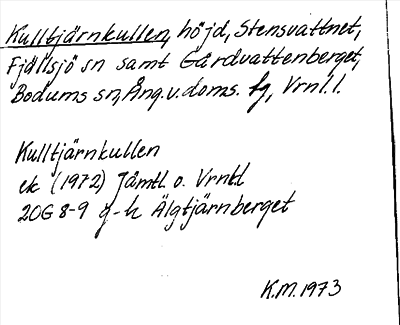 Kulltjärnkullen, höjd, Stensvattnet,
Fjällsjö sn samt Gårdvattenberget,
Bodums sn, Ång.v.doms. fg, Vrnl.l.
Kulltjärnkullen
ek (1972) Jämtl. o. Vrntl
20G 8-9 g-h Älgtjärnberget
K.M. 1973